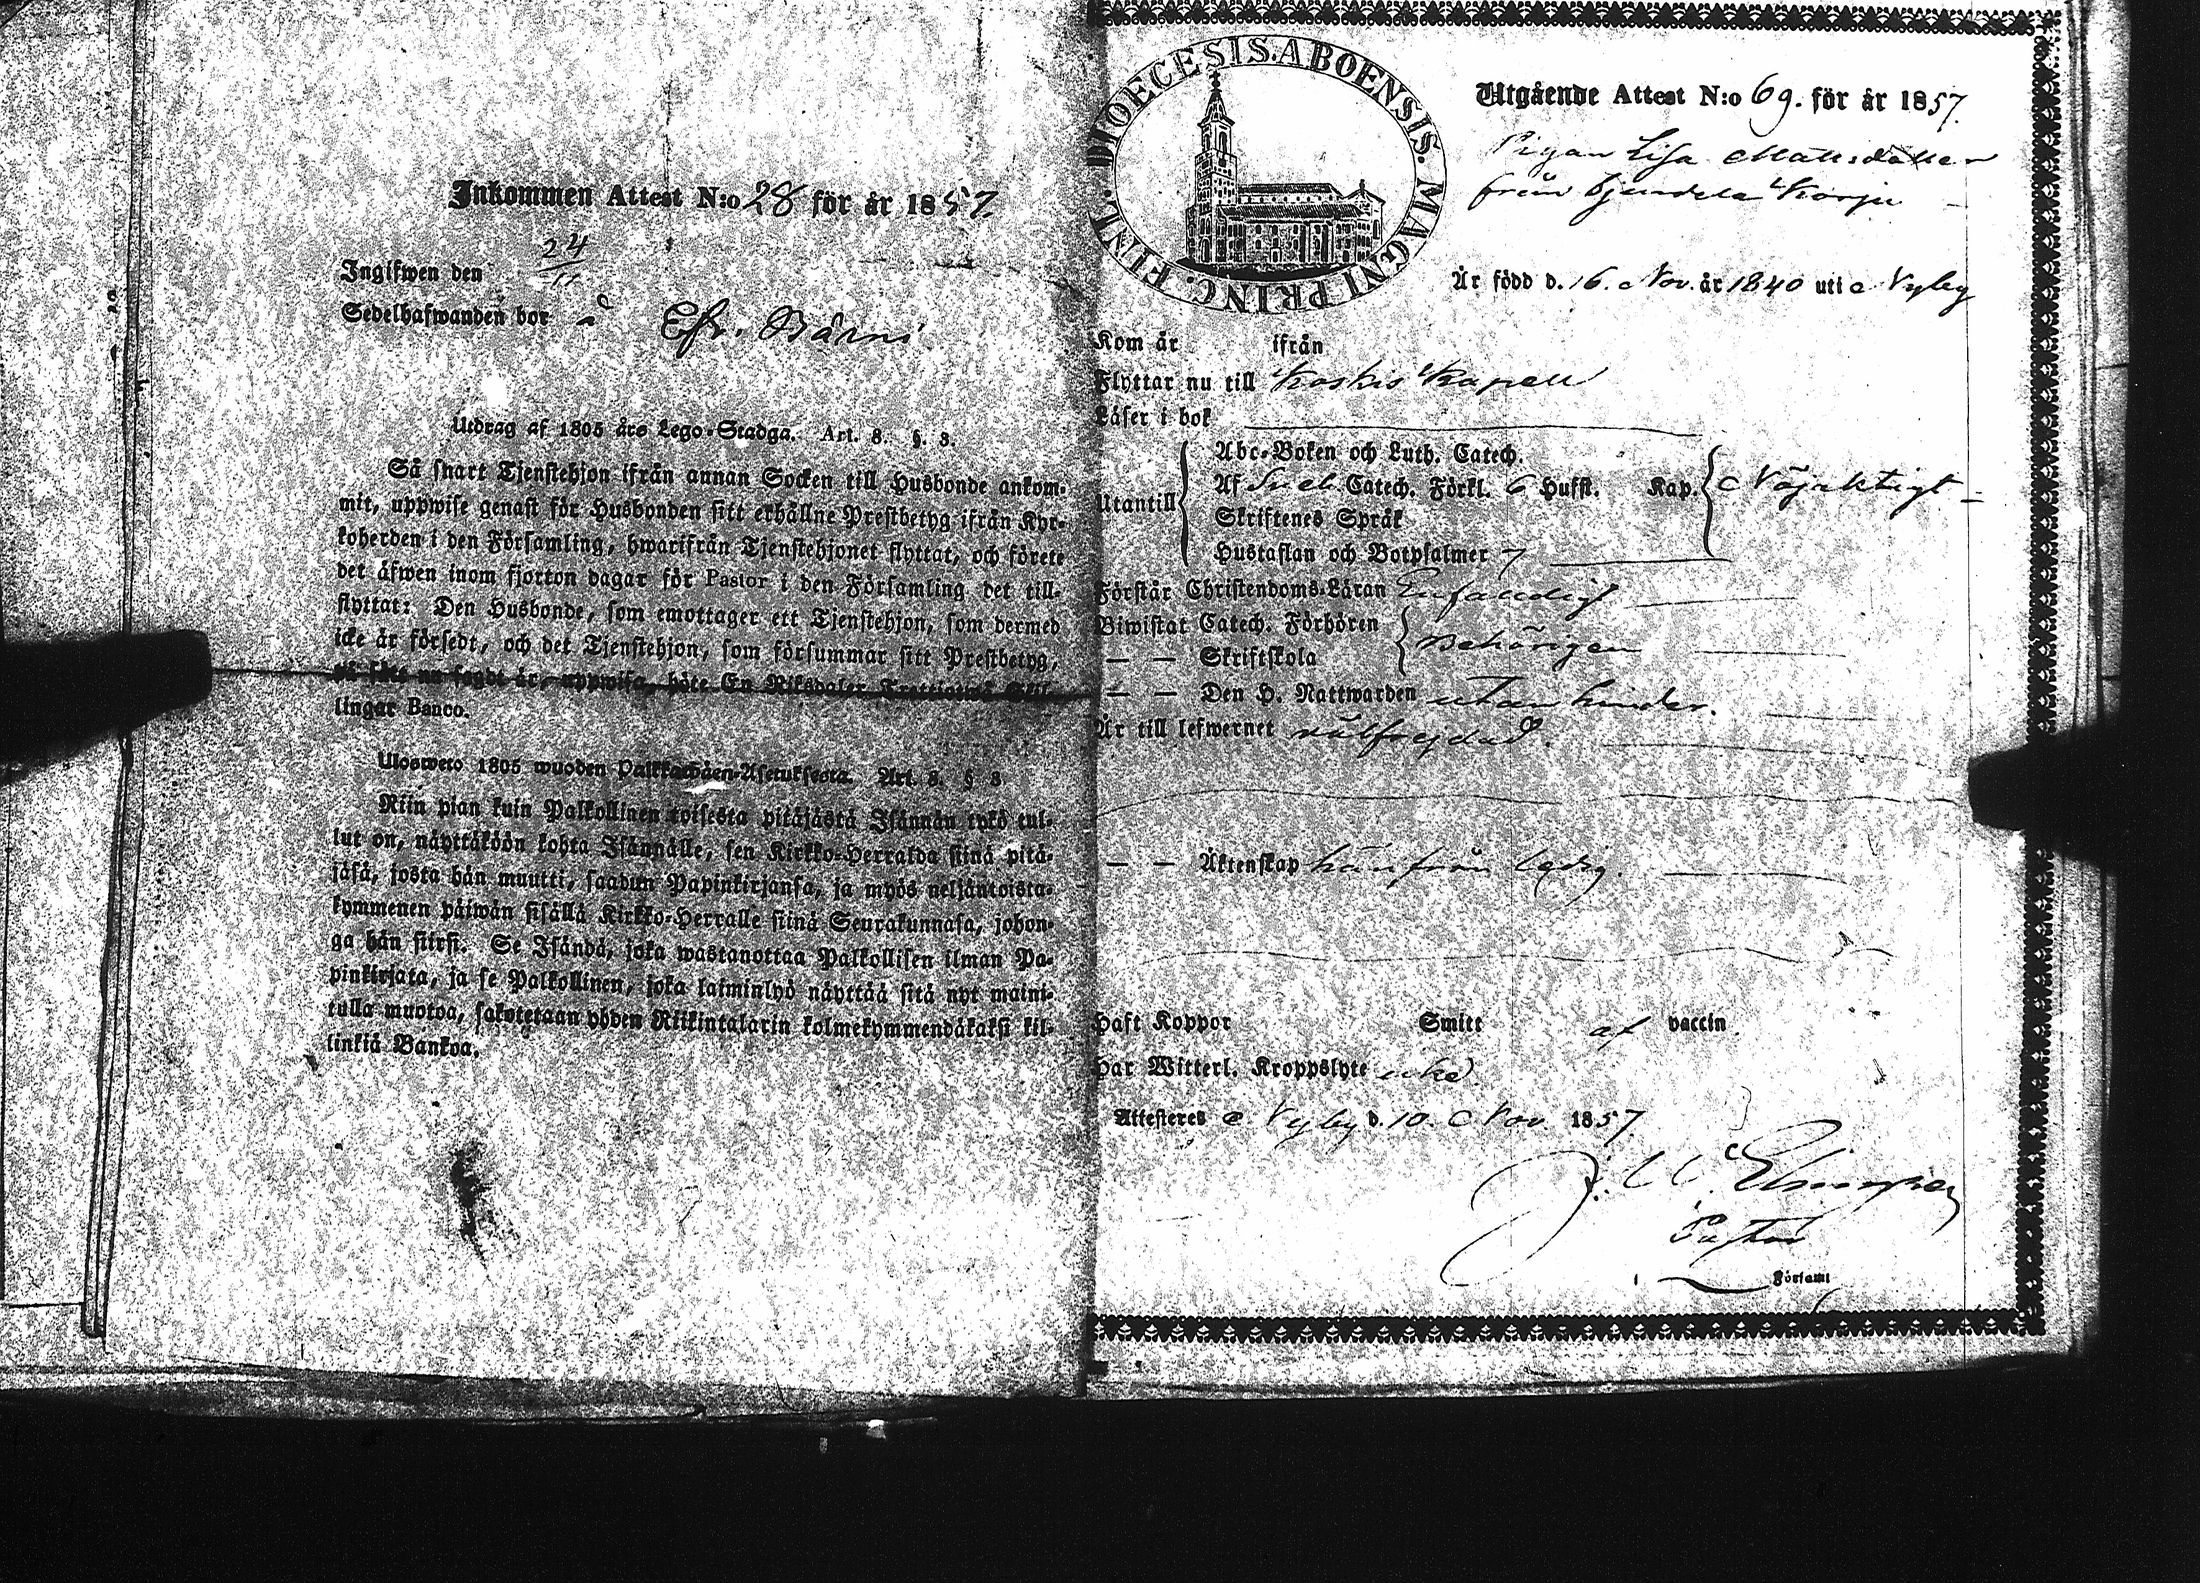 Inkommen Attest N:o 28 för år 1857.
Ingifwen den 24/11
Sedelhafwanden bor å Efr. Bärni
Utdrag af 1805 års Lego-Stadga. Art. 8. §. 3.
Så snart Tjenstehjon ifrån annan Socken till Husbonde ankom-
mit, uppwise genast för Husbonden sitt erhållne Prestbetyg ifrån Kyr-
koherden i den Församling, hwarifrån Tjenstehjonet flyttat, och förete
det äfwen inom fjorton dagar för Pastor i den Församling det till-
flyttat: Den Husbonde, som emottager ett Tjenstehjon, som dermed
icke är försedt, och det Tjenstehjon, som försummar sitt Prestbetyg,
på sätt nu sagdt är, uppwisa, böte En Riksdaler Trettiotwå Skil-
lingar Banco.
Ulosweto 1805 wuoden Palkkawäen-Asetuksesta. Art. 8. § 3
Niin pian kuin Palkollinen toisesta pitäjästä Isännän tykö tul-
lut on, näyttäköön kohta Isännälle, sen Kirkko-Herralda siinä pitä-
jäsä, josta hän muutti, saadun Papinkirjansa, ja myös neljäntoista-
kymmenen päiwän sisällä Kirkko-Herralle siinä Seurakunnasa, johon-
ga hän siirsi. Se Isändä, joka wastanottaa Palkollisen ilman Pa-
pinkirjata, ja se Palkollinen, joka laiminlyö näyttää sitä nyt maini-
tulla muotoa, sakotetaan yhden Riikintalarin kolmekymmendäkaksi kil-
linkiä Bankoa.
DIOECESIS. ABOENSIS. MAGNI PRINC. FINL.
Utgående Attest N:o 69. för år 1857.
Pigan Lisa Mattsdotter
från Tjurdela Korju
Är född d. 16. Nov. år 1840 uti Nyby
Kom år ifrån
Flyttar nu till Koskis Kapell
Läser i bok
Utantill
Abc-Boken och Luth. Catech.
Af Sveb. Catech. Förkl. 6 Hufst. Kap. Nöjaktigt
Skriftenes Språk
Hustaflan och Botpsalmer 7
Förstår Christendoms-Läran Enfaldigt
Biwistat Catech. Förhören
— — Skriftskola Behörigen
— — Den H. Nattwarden utan hinder.
Är till lefwernet välfrejdad.
— — Äktenskap härifrån ledig.
Haft Koppor Smitt af vaccin
Har Witterl. Kroppslyte icke
Attesteres Nyby d. 10. Nov 1857.
Pastor
Församl